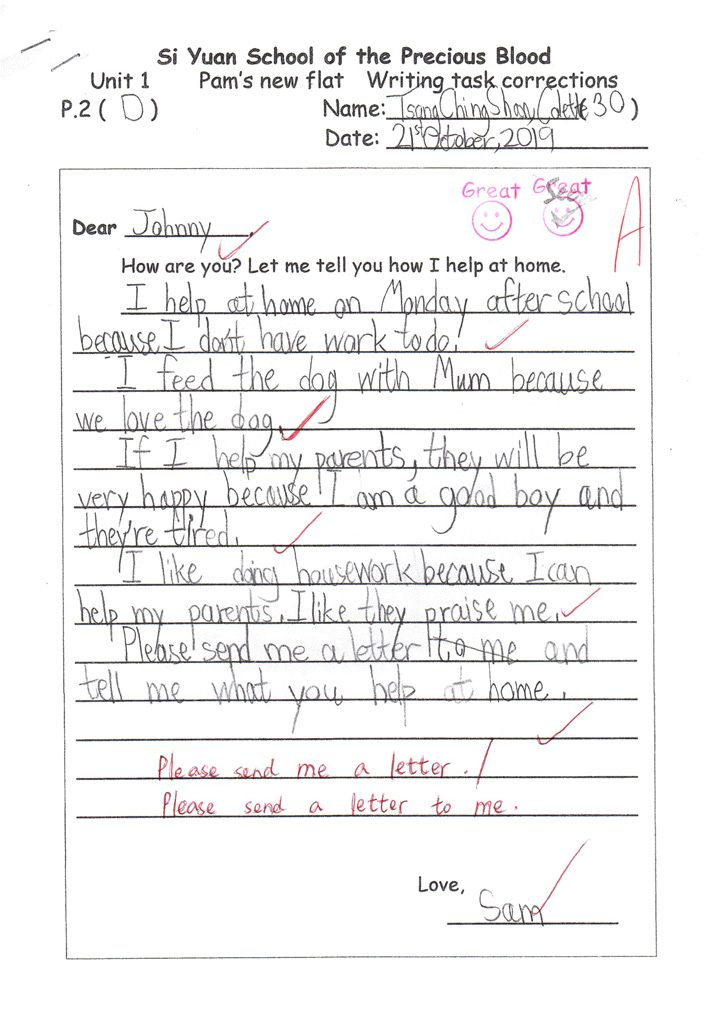 Si Yuan School of the Precious Blood
Unit 1 Pam's new flat Writing task corrections
P.2 ( D ) Name: Tsang Ching Shan, Colette ( 30 )
Date: 21st October, 2019
Great Great
See
A
Dear Johnny,
How are you? Let me tell you how I help at home.
I help at home on Monday after school
because I don't have work to do.
I feed the dog with Mum because
we love the dog.
If I help my parents, they will be
very happy because I am a good boy and
they're tired.
I like doing housework because I can
help my parents. I like they praise me.
Please send me a letter to me and
tell me what you help at home.
Please send me a letter. /
Please send a letter to me.
Love,
Sam